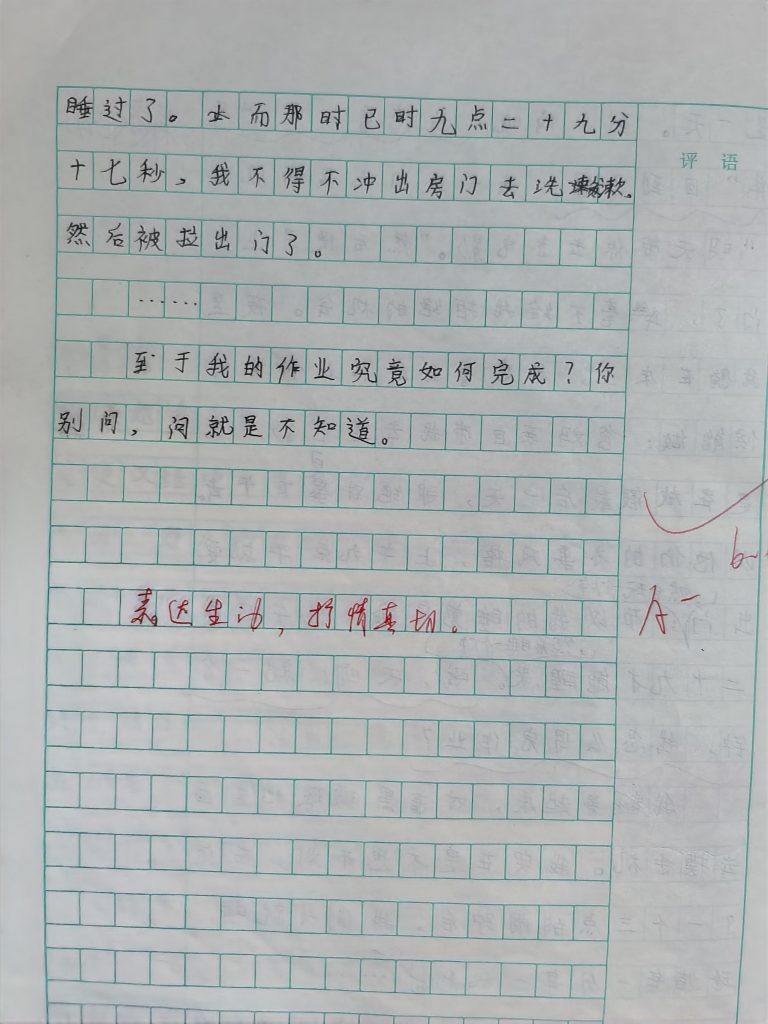 睡过了。而那时已时九点二十九分
评语
十七秒，我不得不冲出房门去洗漱。
然后被拉出门了。
……
至于我的作业究竟如何完成？你
别问，问就是不知道。
表达生动，抒情真切。
A-